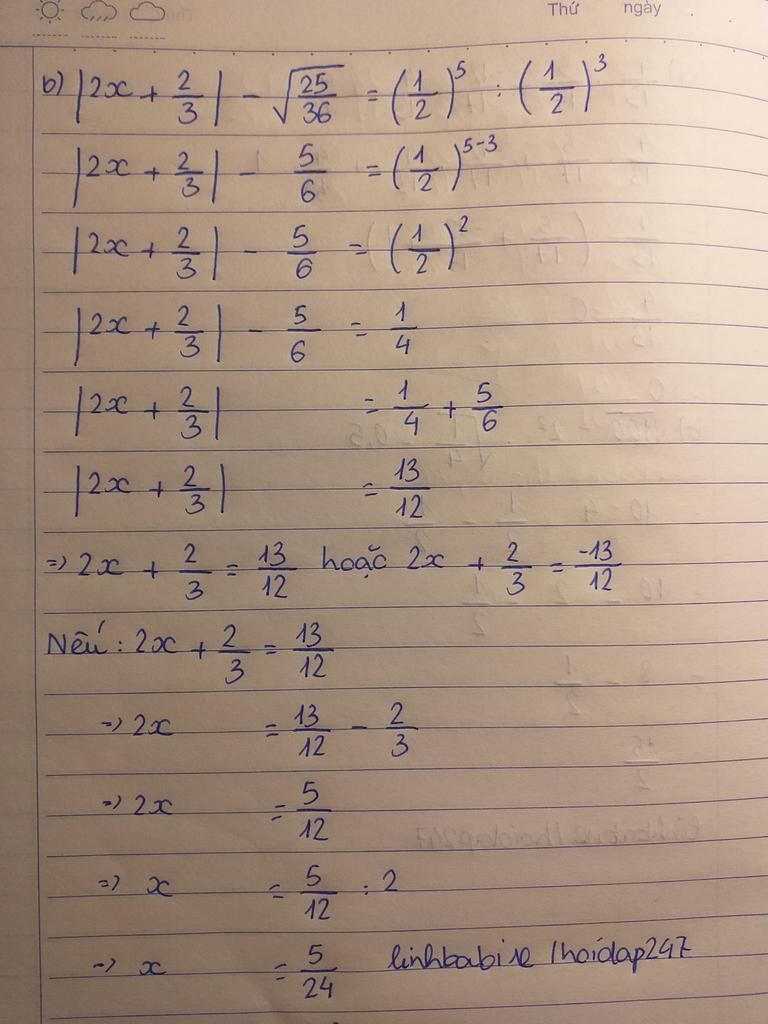 Thứ ngày
b) |2x + 2/3| - √(25/36) = (1/2)^5 : (1/2)^3
|2x + 2/3| - 5/6 = (1/2)^(5-3)
|2x + 2/3| - 5/6 = (1/2)^2
|2x + 2/3| - 5/6 = 1/4
|2x + 2/3| = 1/4 + 5/6
|2x + 2/3| = 13/12
=> 2x + 2/3 = 13/12 hoặc 2x + 2/3 = -13/12
Nếu : 2x + 2/3 = 13/12
=> 2x = 13/12 - 2/3
=> 2x = 5/12
=> x = 5/12 : 2
=> x = 5/24 linhbabie /hoidap247